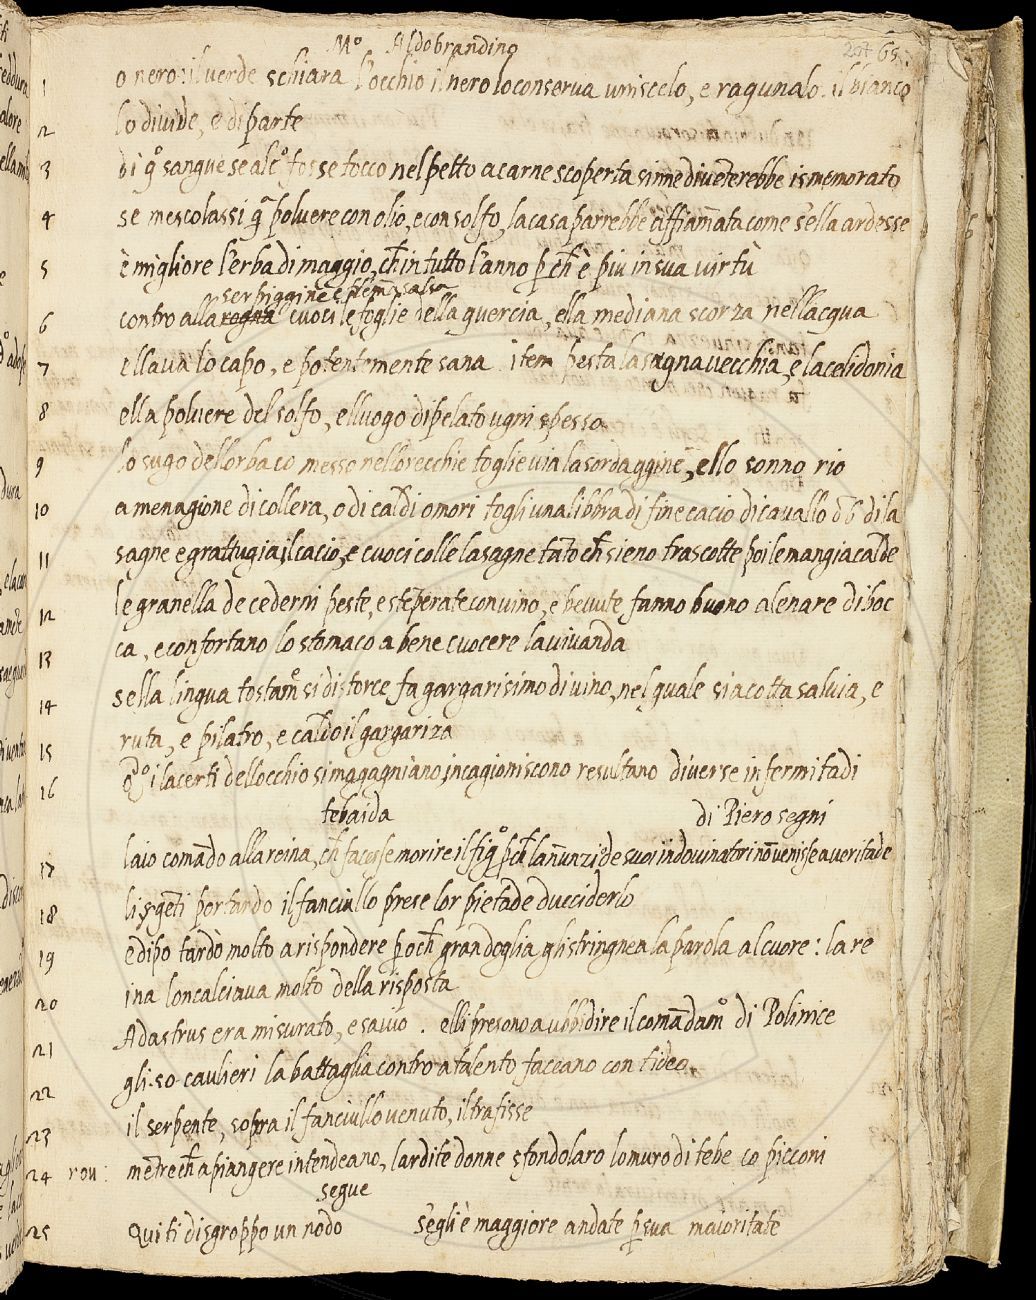 Mº Aldobrandino 65
1 o nero: il verde schiara l'occhio il nero lo conserva umiscelo, e ragunalo. il bianco
2 lo divide, e diparte
3 di qº sangue se alcº fosse tocco nel petto a carne scoperta sinne diveterebbe ismemorato
4 se mescolassi qª polvere con olio, e con solfo, la casa parrebbe affiamata come s'ella ardesse
5 è migliore l'erba di maggio, ch in tutto l'anno p ch è piu in sua virtù
serpiggine e flema salsa
6 contro alla rogna cuoci le foglie della quercia, ella mediana scorza nell'acqua
7 ellava lo capo, e potentemente sana. item pesta la sugna vecchia, e la celidonia
8 ella polvere del solfo, elluogo dipelato ugni spesso
9 lo sugo dell'orbaco messo nell'orecchie toglie via la sordaggine, ello sonno rio
10 a menagione di collera, o di caldi omori togli una libbra di fine cacio di cavallo di la
11 sagne e grattugia il cacio, e cuoci colle lasagne tāto ch sieno trascotte poi le mangia calde
12 le granella de cederni peste, e stēperate con vino, e bevute fanno buono alenare di boc
13 ca, e confortano lo stomaco a bene cuocere la vivanda
14 sella lingua tostamº si distorce, fa gargarisimo di vino, nel quale sia cotta salvia, e
15 ruta, e pilatro, e caldo il gargariza
16 i lacerti dell'occhio si magagniano, incagioniscono resultano diverse infermitadi
tebaida di Piero segni
17 laio comādo alla reina, ch facesse morire il figº pch l'anunzi de suoi indovinatori nō venisse a veritade
18 li sgēti portando il fanciullo prese lor pietade d'ucciderlo
19 edipo tardò molto a rispondere p och gran doglia gli stringnea la parola al cuore: la re
20 ina l'oncalciava molto della risposta
21 Adastrus era misurato, e savio. elli presono a ubbidire il comādamº di Polinice
22 gli .50. caulieri la battaglia contro a talento faceano con tideo.
23 il serpente, sopra il fanciullo venuto, il trafisse
24 rou: mētre ch a piangere intendeano, l'ardite donne sfondolaro lo muro di tebe co picconi
segue
25 Qui ti disgroppo un nodo s'egli è maggiore andate p sua maioritate